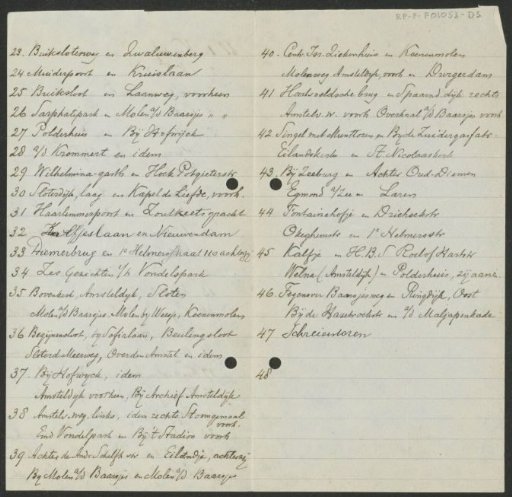 RP-F-F01053-DS
23. Buiksloterweg en Zwaluwenberg
24 Muiderpoort en Kruislaan
25 Buiksloot en Laanweg, voorheen
26 Sarphatipark en Molen a/d Baarsjes " "
27 Polderhuis en Bij Hofwijck
28 a/d Krommert en idem
29 Wilhelmina-gasth. en Hoek Potgieterstr.
30 Sloterdijk, laag en Kapel de Liefde, voorh.
31 Haarlemmerpoort en Zoutkeetsgracht
32 Effjeslaan en Nieuwendam
33 Diemerbrug en 1e Helmersstraat 100 achterzij
34 Zes Gezichten i/h Vondelspark
35 Bovenend, Amsteldijk, Sloten
Molen a/d Baarsjes Molen bij Weesp, Koenenmolen
36 Begijnensloot, bij Sofialaan, Beulingsloot
Sloterd. Meerweg, Overden Amstel en idem
37 Bij Hofwyck, idem
Amsteldijk voorheen, Bij Archief Amsteldijk
38 Amstelv. weg links, idem rechts Stoomgemaal voorh.
Eind Vondelpark en Bij 't Stadion voorh
39 Achter de en Eilandje, achterzij
Bij Molen a/d Baarsjes en Molen a/d Baarsjes
40. Centr. Isr. Ziekenhuis en Koenenmolen
Molenweg Amsteldijk, voorh en Durgerdam
41 Hashoeldsche brug en Spaarnd. dijk rechts
Amstelv. w. voorh Overhaal a/d Baarsjes voorh
42 Singel met Munttoren en Bij de Zuidergasfabr.
Eilandskerk en St. Nicolaaskerk
43 Bij Zeeburg en Achter Oud-Diemen
Egmond a/Zee en Laren
44 Fonteinehofje en Driehoekstr
Overhuerstr en 1e Helmersstr
45 Kalfje en H.B.S Roelof Hartstr
Welna (Amsteldijk) en Polderhuis, zijaanz.
46 Baarsjesweg en Ringdijk, Oost
Bij de Hautvaststr en a/d Molzapenkade
47 Schreierstoren
48